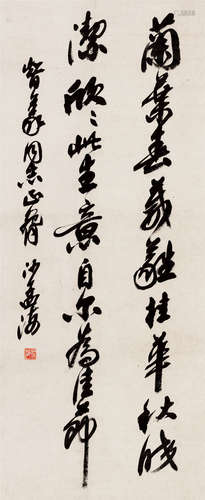 蘭葉春葳蕤桂華秋皎
潔欣欣此生意自尔為佳節
智义同志正腕 沙孟海